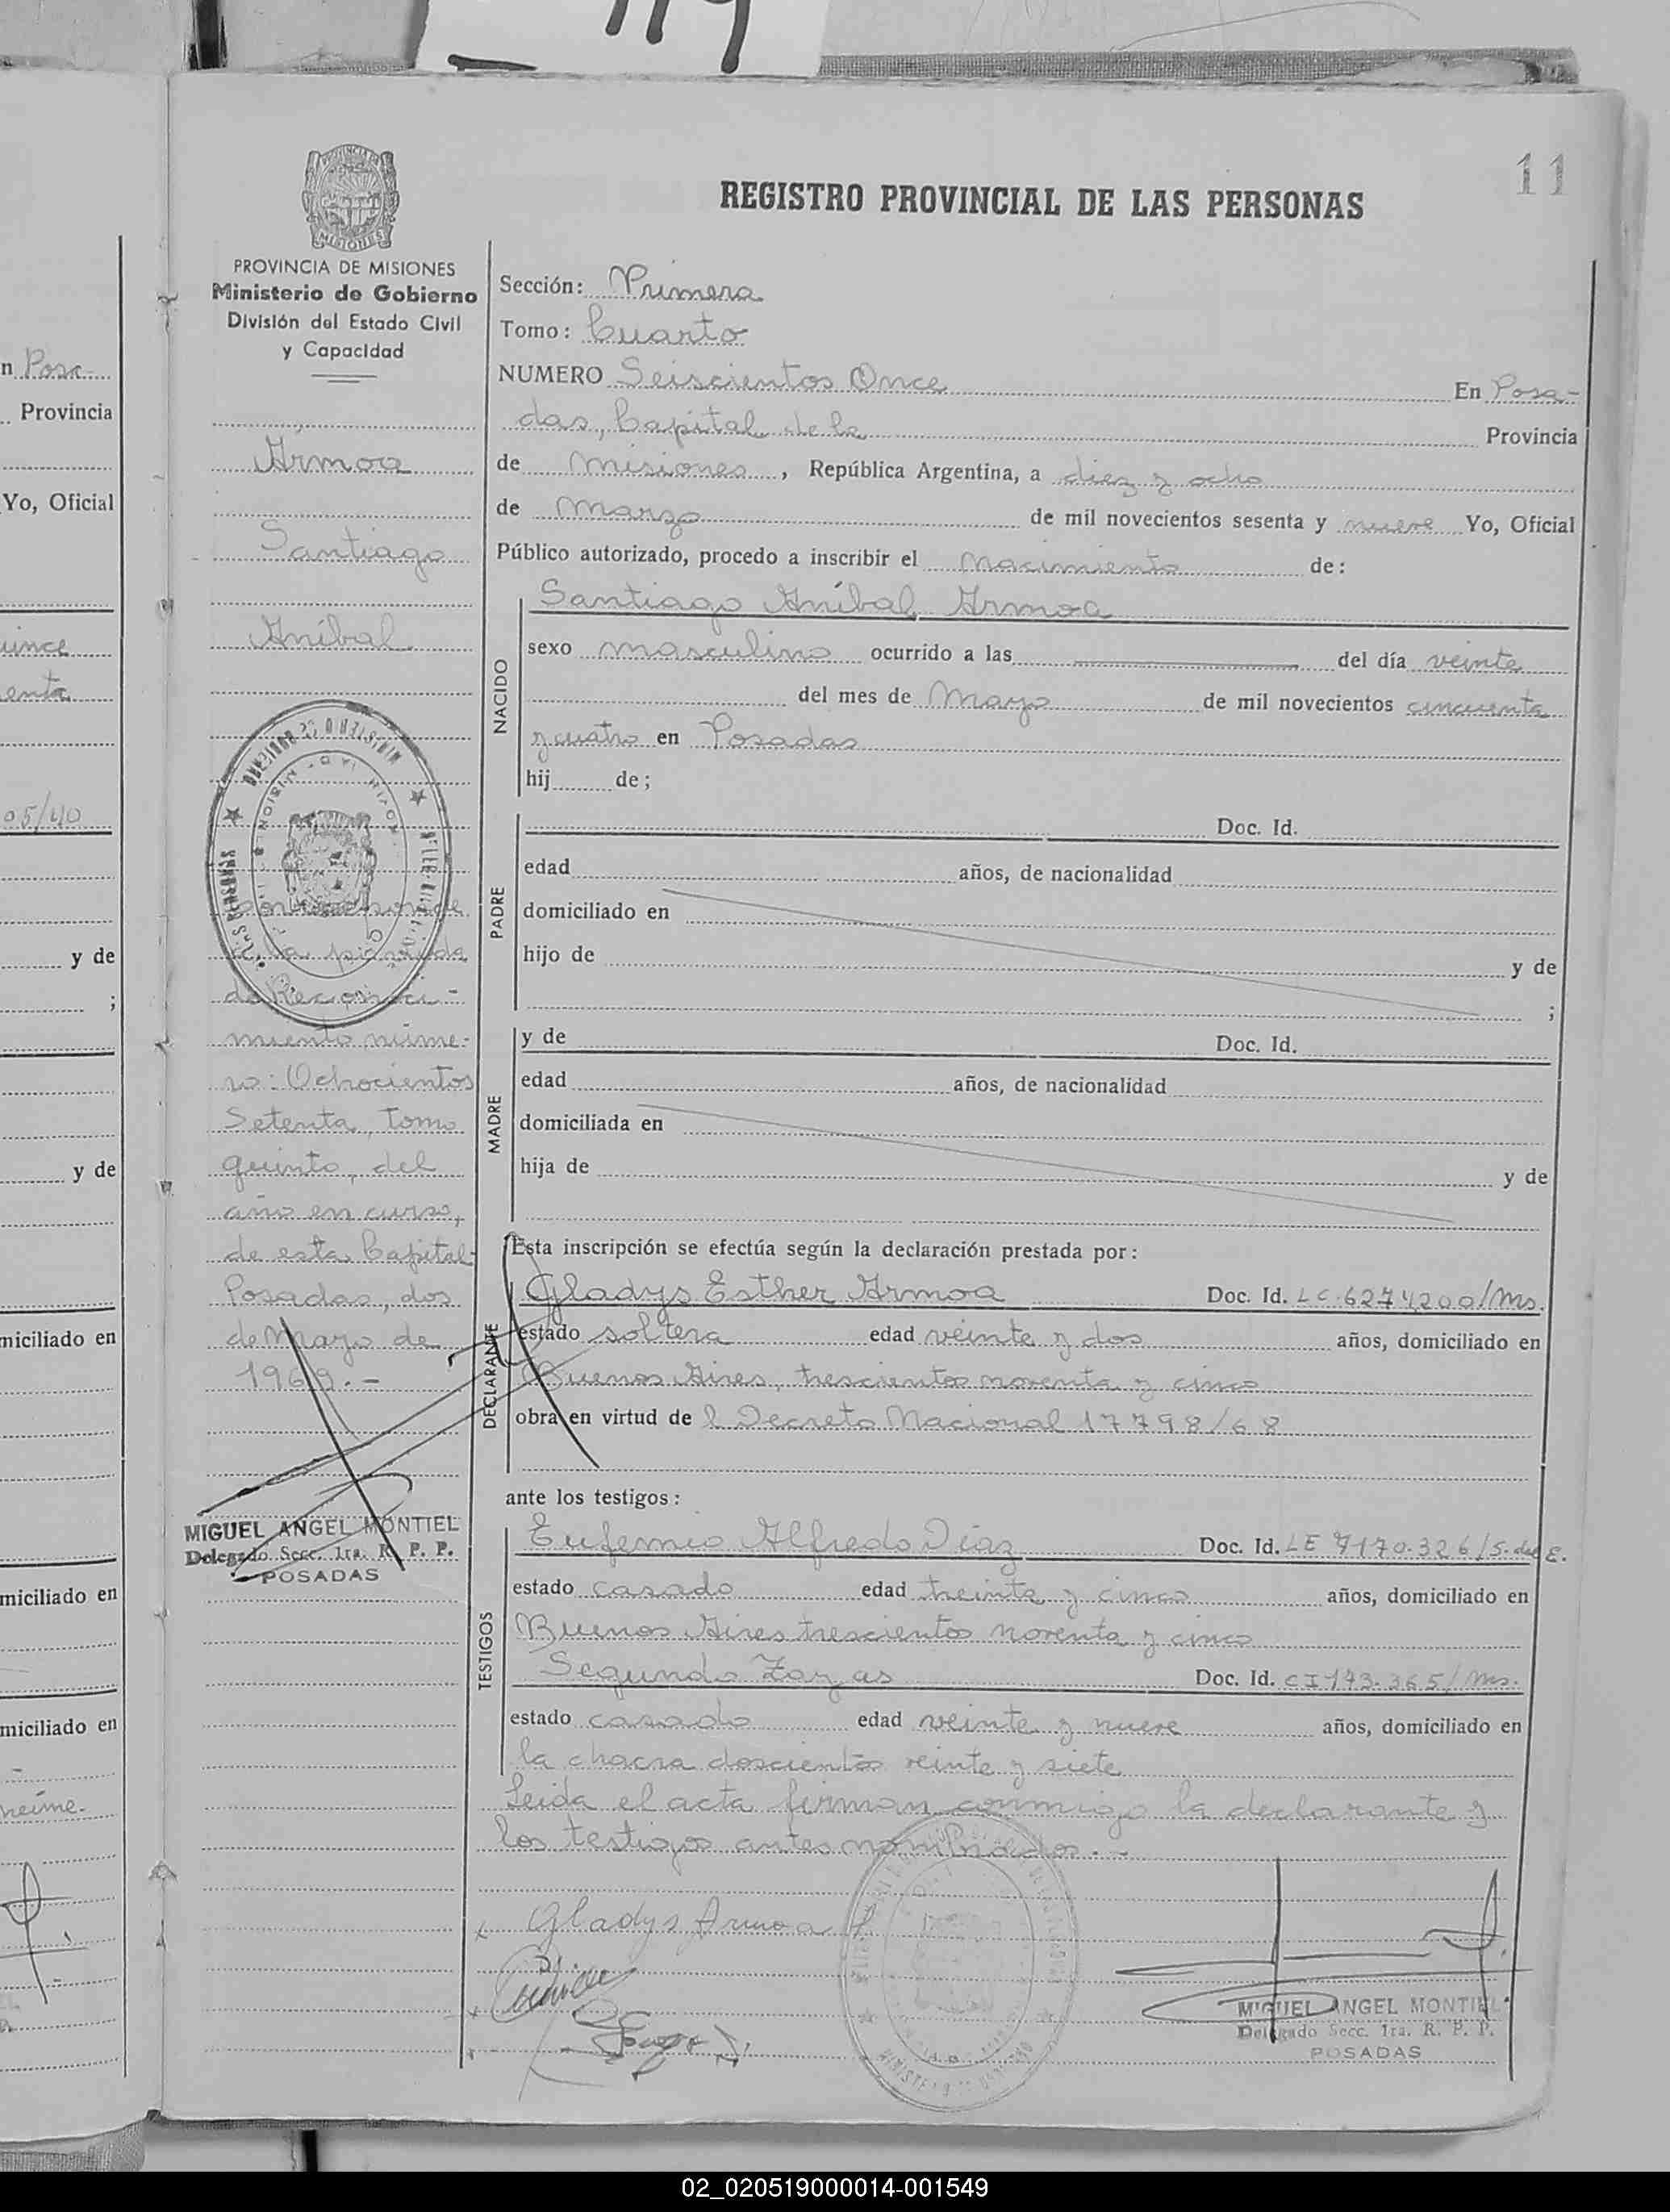 11
REGISTRO PROVINCIAL DE LAS PERSONAS
PROVINCIA DE MISIONES
Ministerio de Gobierno
División del Estado Civil
y Capacidad
Armoa
Santiago
Aníbal
corresponde
a la partida
de Reconoci-
miento núme-
ro: Ochocientos
Setenta, Tomo
quinto, del
año en curso,
de esta Capital-
Posadas, dos
de Mayo de
1969.-
MIGUEL ANGEL MONTIEL
Delegado Secc. 1ra. R. P. P.
POSADAS
Sección: Primera
Tomo: Cuarto
NUMERO Seiscientos Once En Posa-
das, Capital de la Provincia
de Misiones, República Argentina, a diez y ocho
de Marzo de mil novecientos sesenta y nueve Yo, Oficial
Público autorizado, procedo a inscribir el Nacimiento de:
NACIDO
Santiago Aníbal Armoa
sexo masculino ocurrido a las del día veinte
del mes de Mayo de mil novecientos cincuenta
y cuatro en Posadas
hij de;
PADRE
Doc. Id.
edad años, de nacionalidad
domiciliado en
hijo de y de
;
MADRE
y de Doc. Id.
edad años, de nacionalidad
domiciliada en
hija de y de
Esta inscripción se efectúa según la declaración prestada por:
DECLARANTE
Gladys Esther Armoa Doc. Id. LC.6274200/Ms.
estado soltera edad veinte y dos años, domiciliado en
Buenos Aires, trescientos noventa y cinco
obra en virtud de l Decreto Nacional 17798/68
ante los testigos:
TESTIGOS
Eufemio Alfredo Díaz Doc. Id. LE 7170.326/S. del E.
estado casado edad treinta y cinco años, domiciliado en
Buenos Aires trescientos noventa y cinco
Segundo Zayas Doc. Id. CI 173.365/Ms.
estado casado edad veinte y nueve años, domiciliado en
la chacra doscientos veinte y siete
Leida el acta firman conmigo la declarante y
los testigos antes nombrados.-
Gladys Armoa
MIGUEL ANGEL MONTIEL
Delegado Secc. 1ra. R. P. P.
POSADAS
n Posa-
Provincia
Yo, Oficial
uince
enta
05/40
y de
;
y de
miciliado en
miciliado en
miciliado en
02_020519000014-001549